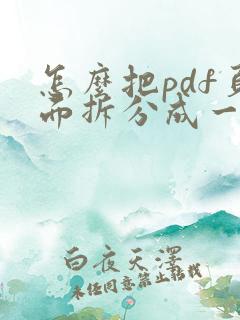 怎麽把pdf页
而拆分成一
白夜天澤
未经同意禁止转载